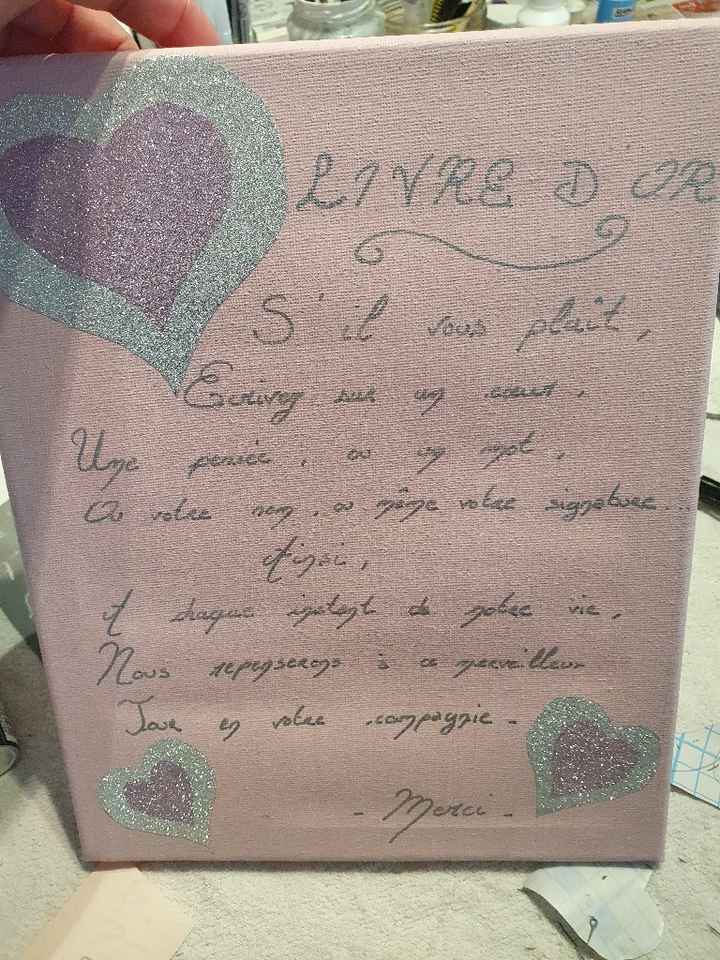 LIVRE D'OR
S'il vous plaît,
Ecrivez sur un cœur,
Une pensée, ou un mot,
Ou votre nom, ou même votre signature...
Ainsi,
A chaque instant de notre vie,
Nous repenserons à ce merveilleux
Jour en votre compagnie.
- Merci -